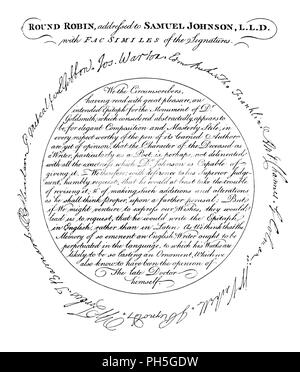 ROUND ROBIN, addressed to SAMUEL JOHNSON, L.L.D.
with FAC SIMILES of the Signatures.
Edw. Gibbon, Jos. Warton
We the Circumscribers,
having read with great pleasure, an
intended Epitaph for the Monument of Dr.
Goldsmith, which considered abstractedly appears to
be, for elegant Composition and Masterly Stile, in
every respect worthy of the pen of its learned Author;
are yet of opinion, that the Character of the Deceased as
a Writer, particularly as a Poet, is, perhaps, not delineated
with all the exactness which Dr. Johnson is Capable of
giving it. We therefore, with deference to his Superior Judg-
ment, humbly request, that he would at least take the trouble
of revising it; & of making such additions and alterations
as he shall think proper, upon a farther perusal: But
if We might venture to express our Wishes, they would
lead us to request, that he would write the Epitaph
in English, rather than in Latin: As We think that the
Memory of so eminent an English Writer ought to be
perpetuated in the language, to which his Works are
likely to be so lasting an Ornament, Which we
also know to have been the opinion of
The late Doctor
himself.
J. Reynolds.
alamy
PH5GDW